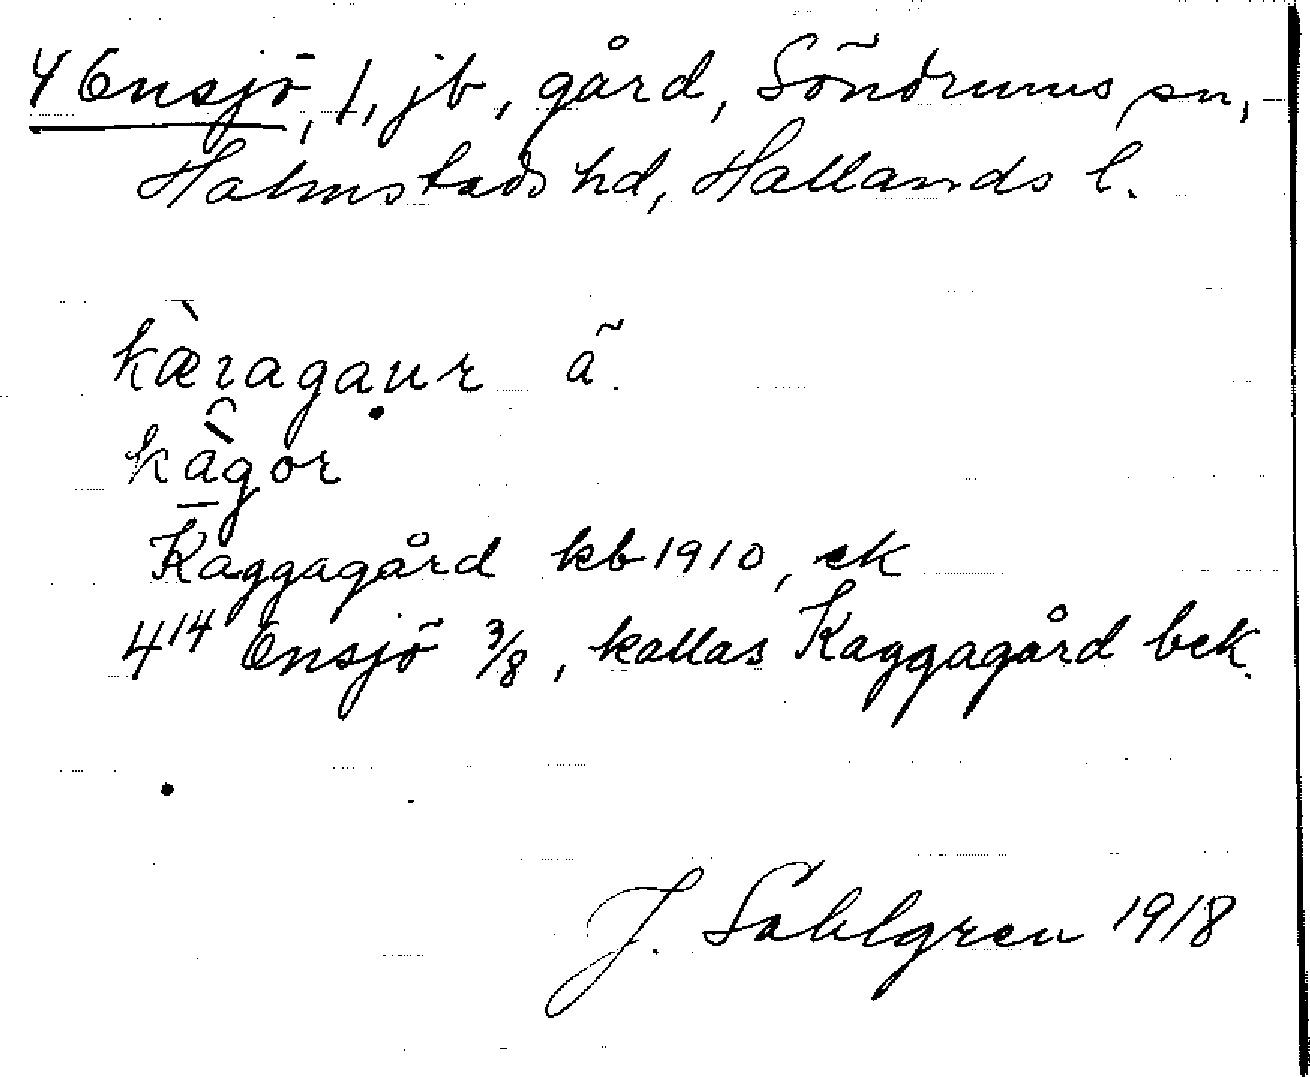 4 Ensjö, 1, jb, gård, Söndrums sn,
Halmstads hd, Hallands l.
kæ̀ragaur ã.
kàgor
Kaggagård kb 1910, ek
4¹⁴ Ensjö 3/8, kallas Kaggagård bek.
J. Sahlgren 1918